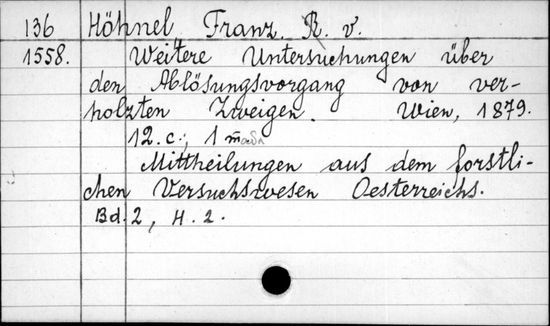 136 Höhnel Franz. R. v.
1558. Weitere Untersuchungen über
den Ablösungsvorgang von ver-
holzten Zweigen. Wien, 1879.
12. c.; 1
Mittheilungen aus dem forstli-
chen Versuchswesen Oesterreichs.
Bd. 2, H. 2.